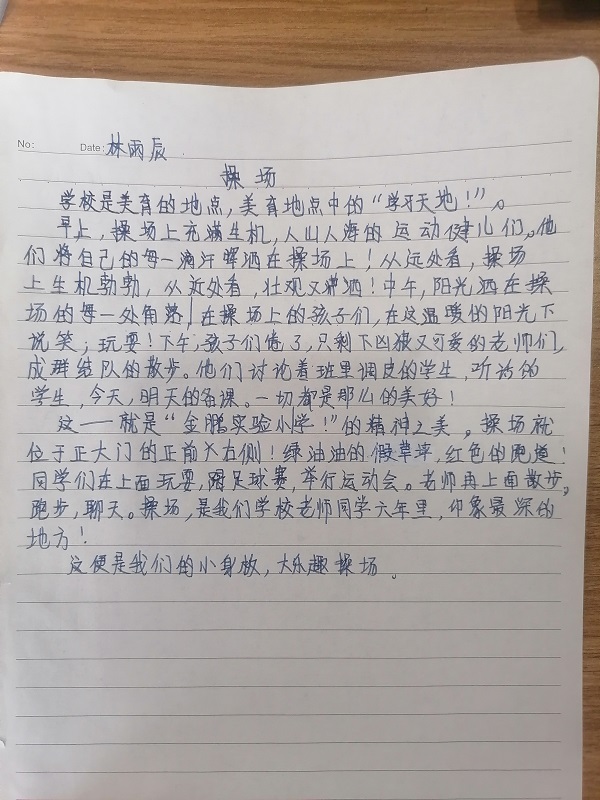 No:
Date: 林雨辰
操场
学校是美育的地点，美育地点中的“学习天地！”。
早上，操场上充满生机，人山人海的运动健儿们。他
们将自己的每一滴汗挥洒在操场上！从远处看，操场
上生机勃勃，从近处看，壮观又潇洒！中午，阳光洒在操
场的每一处角落！在操场上的孩子们，在这温暖的阳光下
说笑；玩耍！下午，孩子们倦了，只剩下凶狠又可爱的老师们，
成群结队的散步。他们讨论着班里调皮的学生，听话的
学生，今天，明天的备课。一切都是那么的美好！
这——就是“金鹏实验小学！”的精神之美。操场就
位于正大门的正前方右侧！绿油油的假草坪，红色的跑道！
同学们在上面玩耍，踢足球赛，举行运动会。老师再上面散步，
跑步，聊天。操场，是我们学校老师同学六年里，印象最深的
地方！
这便是我们的小身板，大乐趣操场。